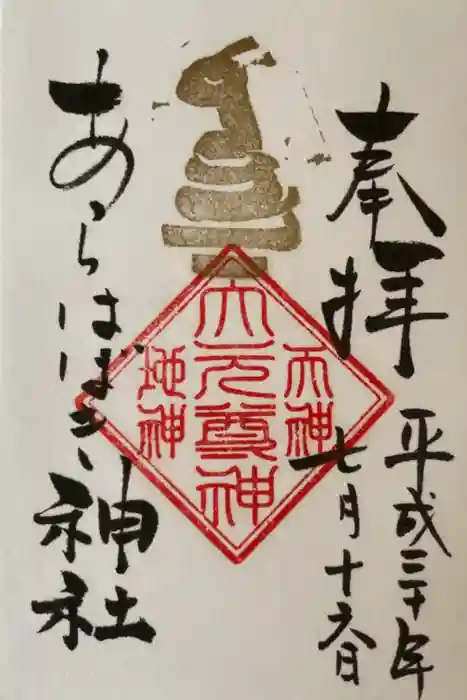 奉拝
平成三十年
七月十六日
天神
大元尊神
地神
あらはばき神社